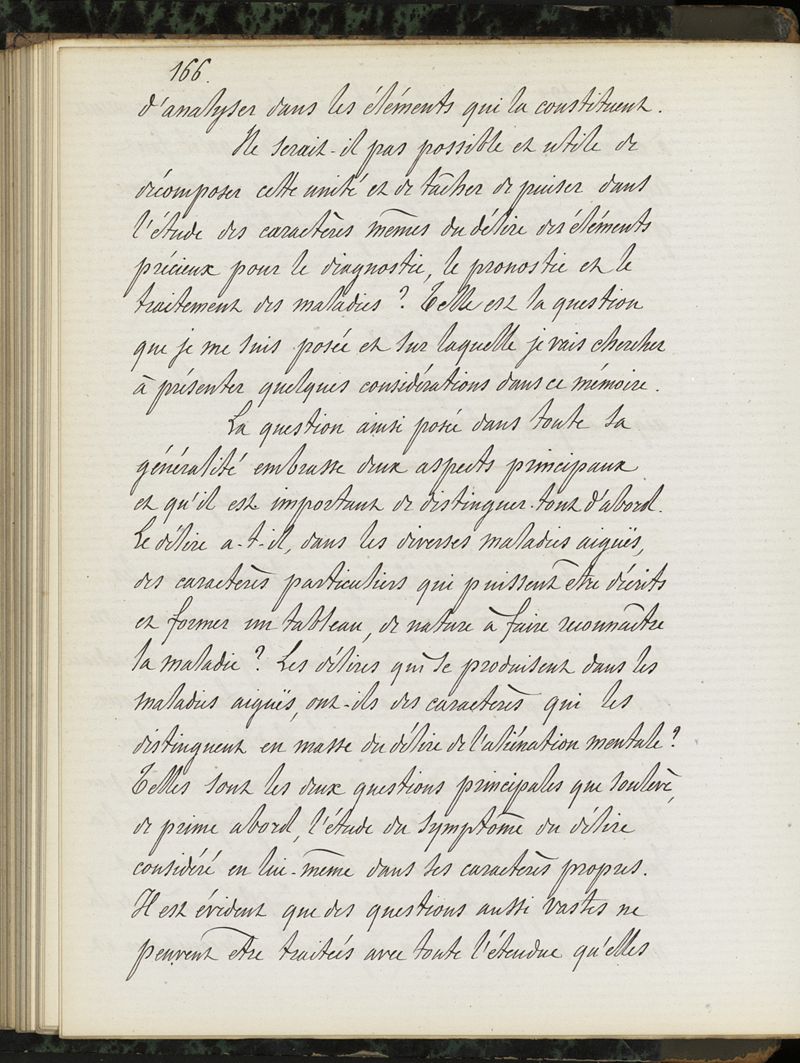 166.
d'analyser dans les éléments qui la constituent.
Ne serait-il pas possible et utile de
décomposer cette unité et de tâcher de puiser dans
l'étude des caractères mêmes du délire des éléments
précieux pour le diagnostic, le pronostic et le
traitement des maladies ? Telle est la question
que je me suis posée et sur laquelle je vais chercher
à présenter quelques considérations dans ce mémoire.
La question ainsi posée dans toute sa
généralité embrasse deux aspects principaux
et qu'il est important de distinguer tout d'abord.
Le délire a-t-il, dans les diverses maladies aiguës,
des caractères particuliers qui puissent être décrits
et former un tableau, de nature à faire reconnaître
la maladie ? Les délires qui se produisent dans les
maladies aiguës, ont-ils des caractères qui les
distinguent en masse du délire de l'aliénation mentale ?
Telles sont les deux questions principales que soulève,
de prime abord, l'étude du symptôme du délire
considéré en lui-même dans ses caractères propres.
Il est évident que des questions aussi vastes ne
peuvent être traitées avec toute l'étendue qu'elles